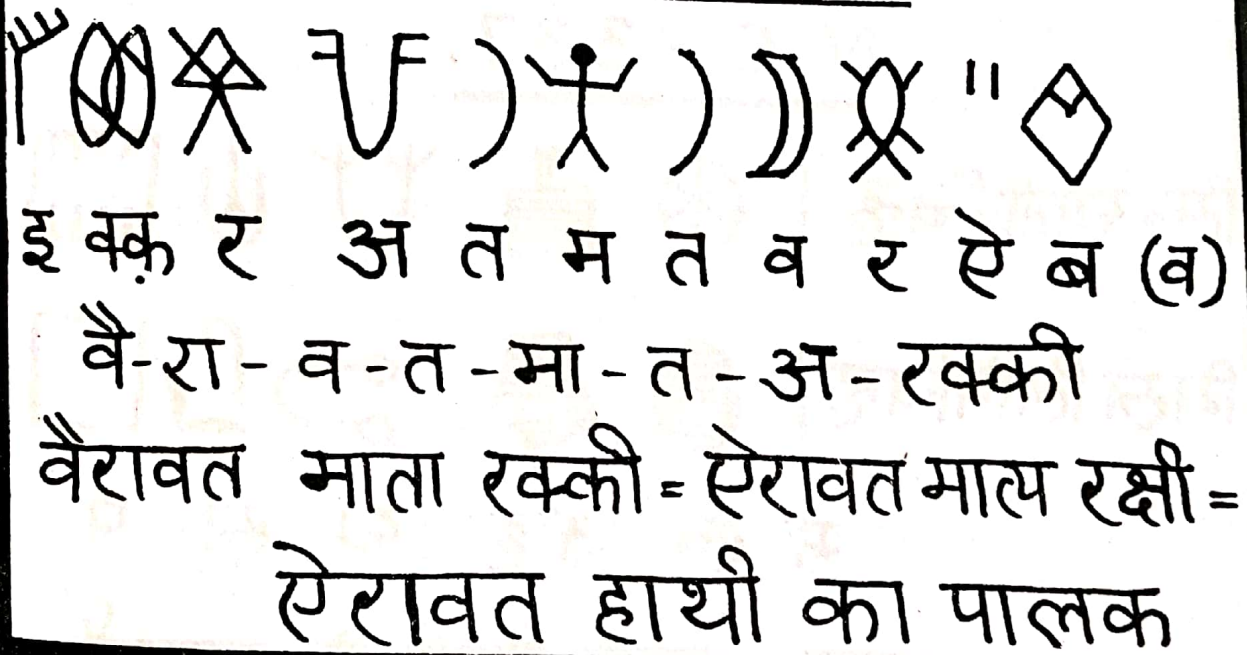 इ क्क़ र अ त म त व र ऐ ब (व)
वै-रा-व-त-मा-त-अ-रक्की
वैरावत माता रक्की = ऐरावत मात्य रक्षी =
ऐरावत हाथी का पालक